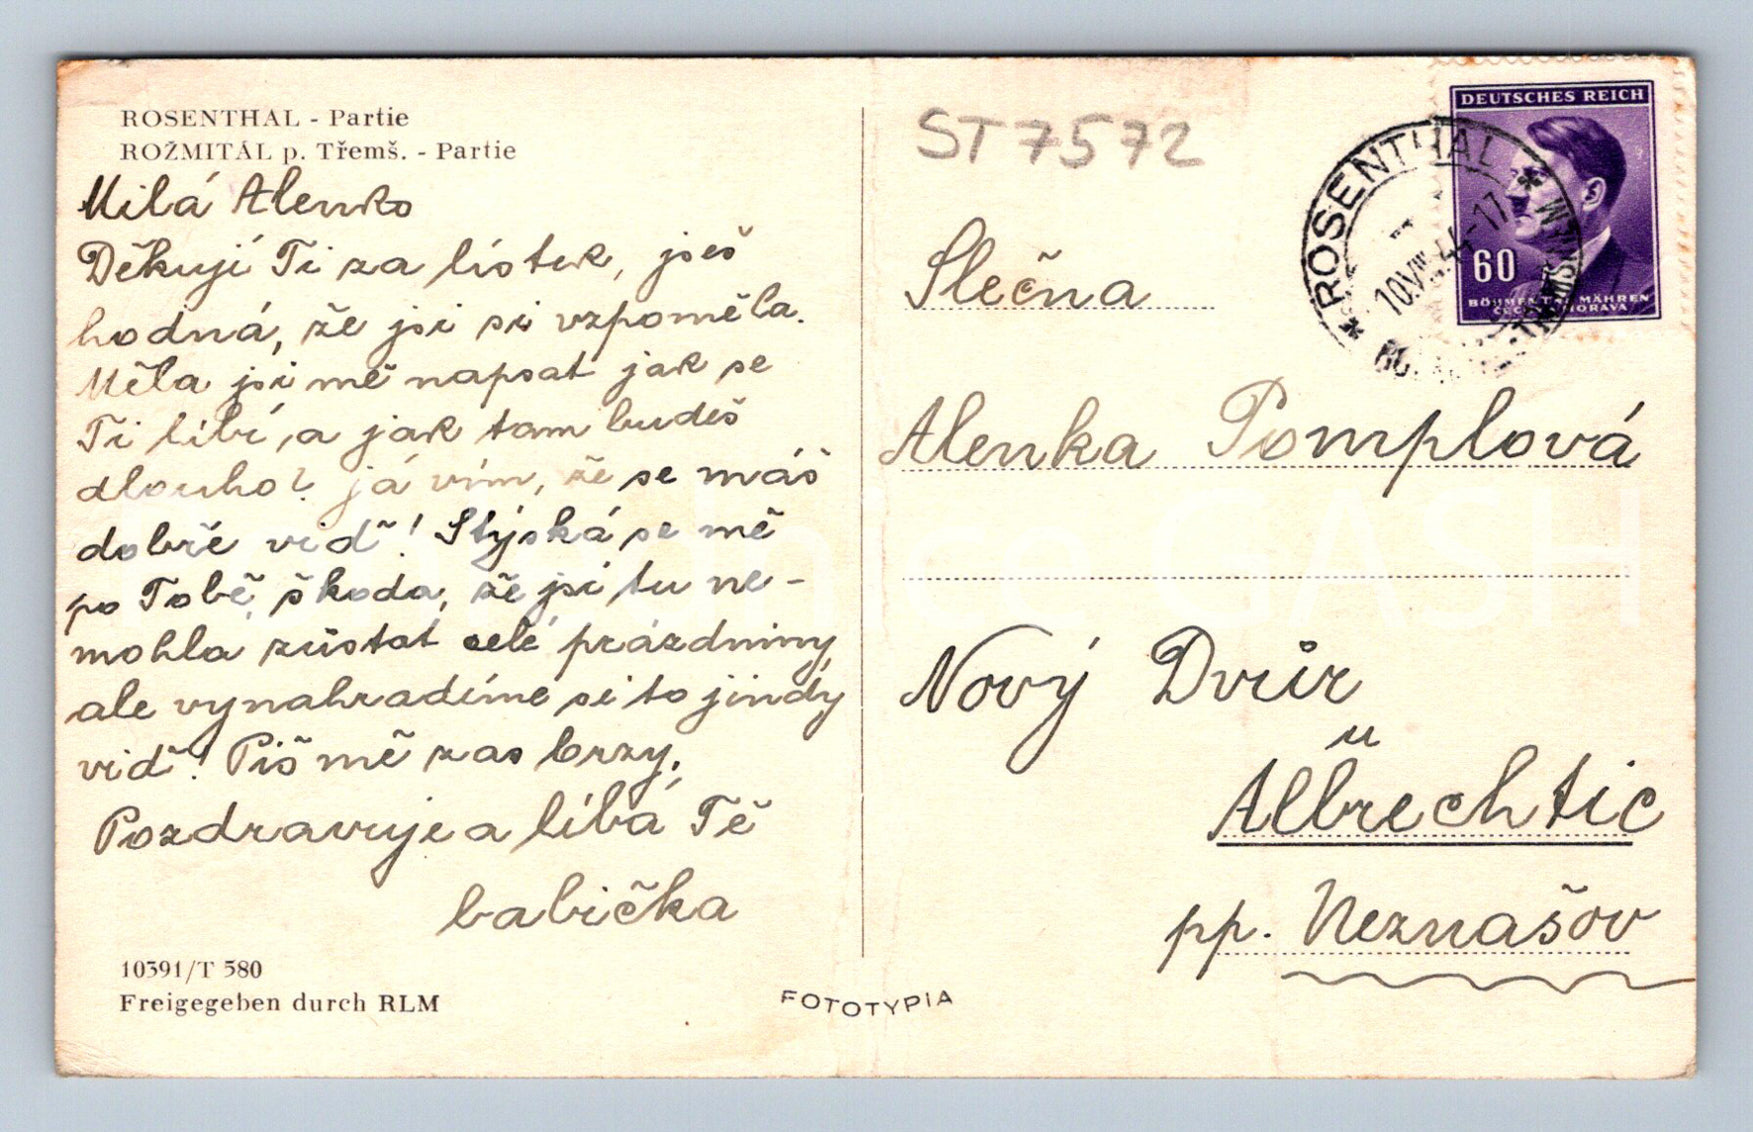 ROSENTHAL - Partie
ROŽMITÁL p. Třemš. - Partie
Milá Alenko
Děkuji Ti za lístek, jseš
hodná, že jsi si vzpoměla.
Měla jsi mě napsat jak se
Ti líbí, a jak tam budeš
dlouho? já vím, že se máš
dobře viď! Stýská se mě
po Tobě, škoda, že jsi tu ne-
mohla zůstat celé prázdniny,
ale vynahradíme si to jindy
viď! Piš mě zas brzy.
Pozdravuje a líbá Tě
babička
10391/T 380
Freigegeben durch RLM
FOTOTYPIA
ST7572
DEUTSCHES REICH
60
BÖHMEN UND MÄHREN
ČECHY A MORAVA
ROSENTHAL
10.VIII.44-17
Slečna
Alenka Pomplová
Nový Dvůr
u
Albrechtic
pp. Neznašov